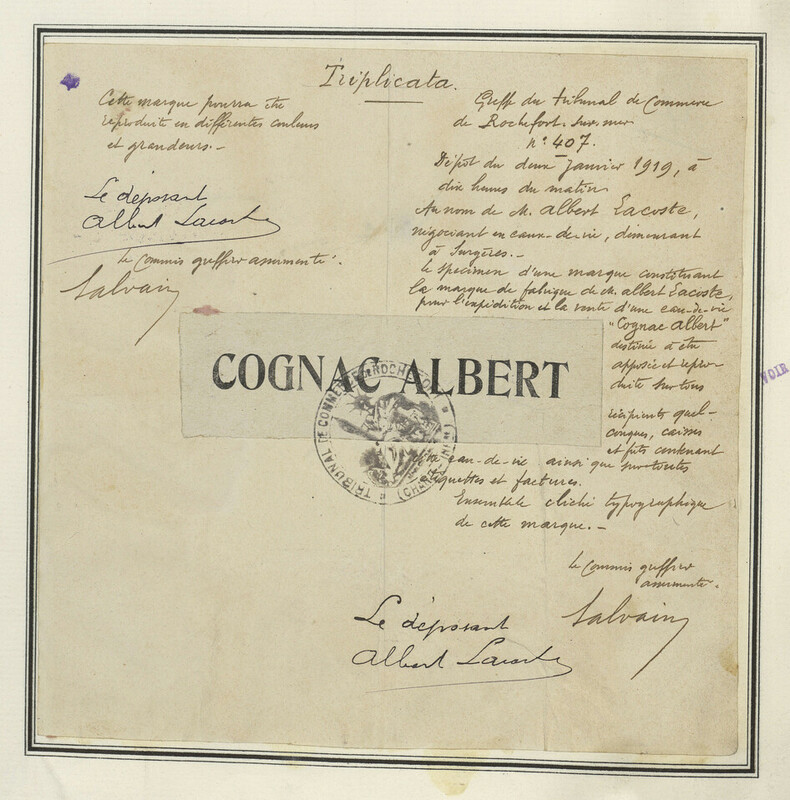 Triplicata.
Cette marque pourra être
reproduite en différentes couleurs
et grandeurs.-
Le déposant
Albert Lacoste
Le Commis greffier assermenté.
Salvain
Greffe du tribunal de Commerce
de Rochefort-sur-mer
n° 407.
Dépôt du deux Janvier 1919, à
dix heures du matin
Au nom de M. Albert Lacoste,
négociant en eaux-de-vie, demeurant
à Surgères.-
Le spécimen d'une marque constituant
la marque de fabrique de M. Albert Lacoste,
pour l'expédition et la vente d'une eau-de-vie
"Cognac Albert"
destinée à être
apposée et repro-
duite sur tous
récipients quel-
conques, caisses
et fûts contenant
cette eau-de-vie ainsi que sur toutes
étiquettes et factures.
Ensemble cliché typographique
de cette marque.-
COGNAC ALBERT
TRIBUNAL DE COMMERCE DE ROCHEFORT
Le Commis greffier
assermenté.
Salvain
Le déposant
Albert Lacoste
NOIR